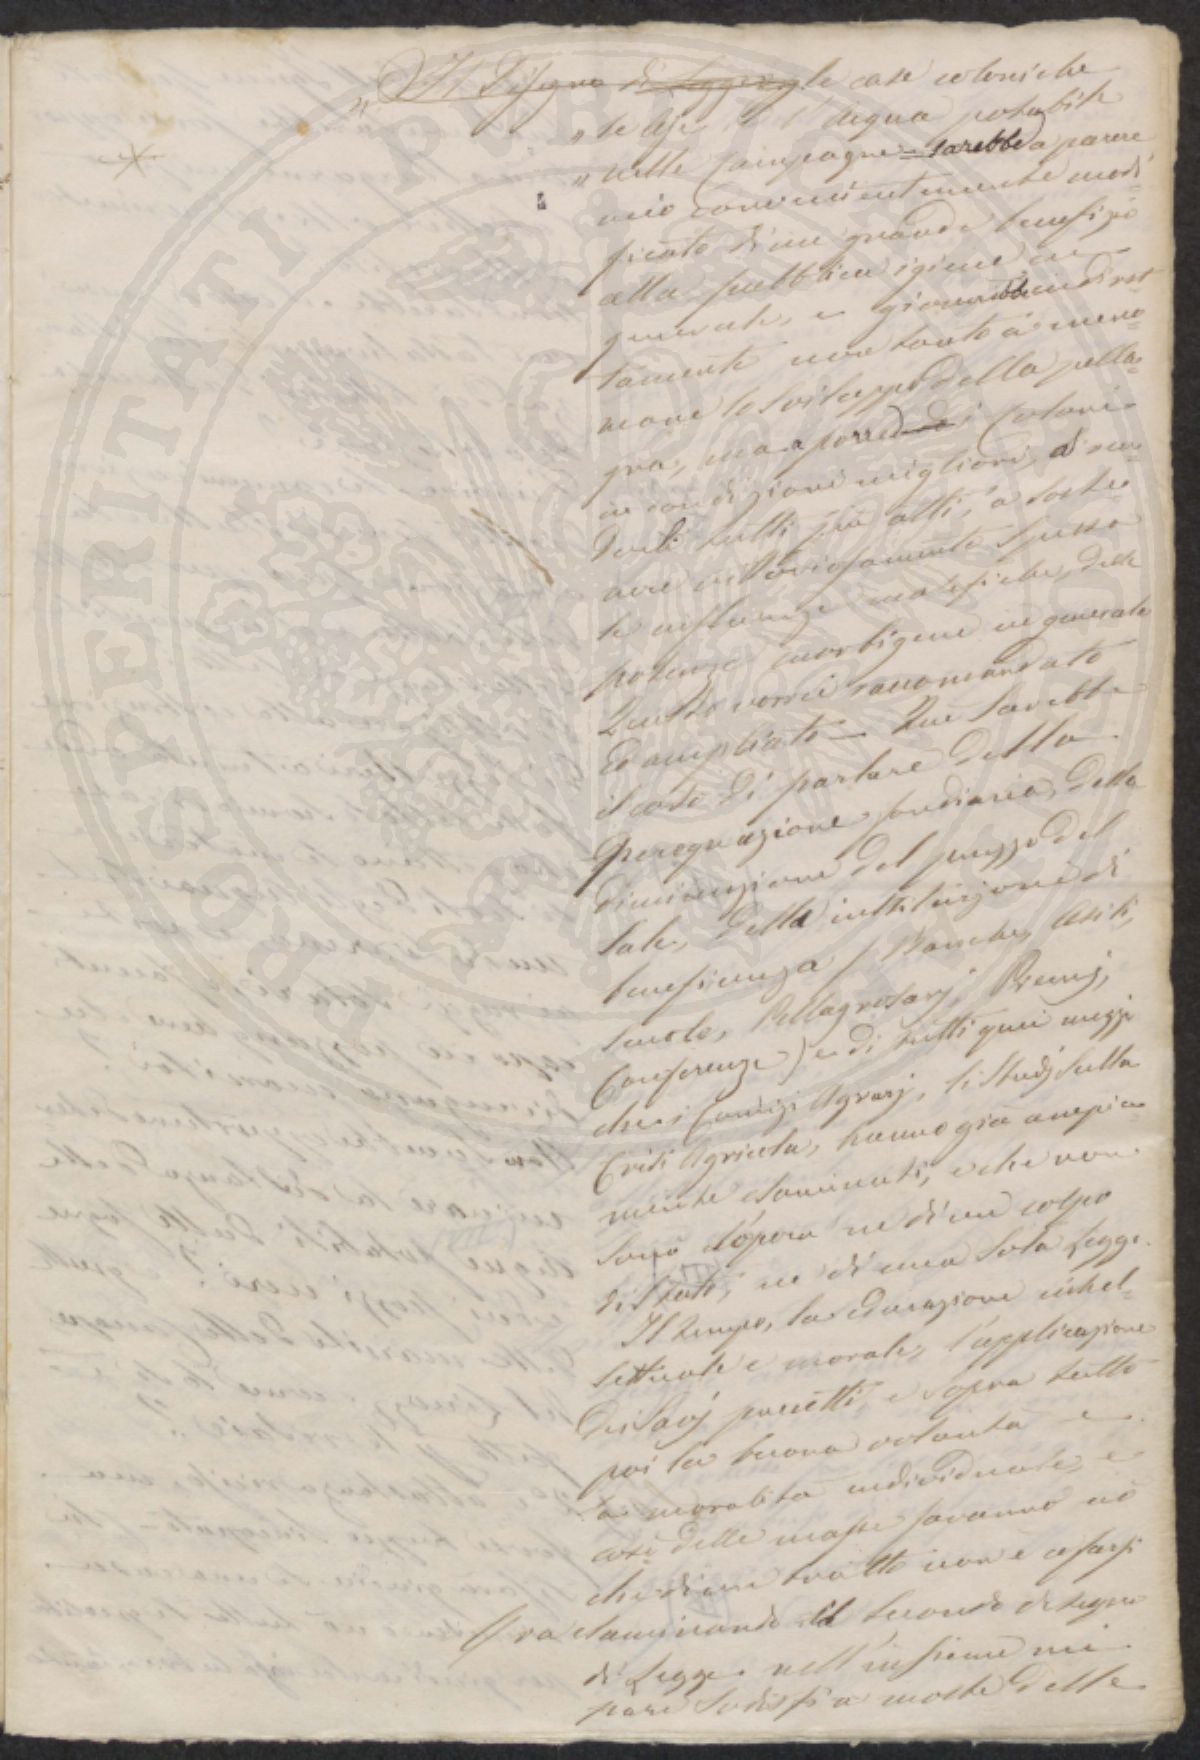 „ Il Disegno di Legge p le case coloniche
„ le Aje e l'acqua potabile
„ nelle Campagne sarebbe a parere
mio convenientemente modi=
ficato di un grande benefizio
alla pubblica igiene in
generale, e gioverebbe indiret=
tamente non tanto a meno=
mare lo sviluppo della pella=
gra, ma a porre i Coloni
in condizioni migliori, a ren=
derli tutti più atti, a soste=
nere vittoriosamente spesso
le influenze malefiche delle
potenze morbigene in generale
Questo vorrei raccomandato
ed ampliato — Qui sarebbe
il caso di parlare della
perequazione fondiaria, della
diminuzione del prezzo del
sale, della instituzione di
beneficenza (Banche, Asili,
Scuole, Pellagrosarj, Premj,
Conferenze) e di tutti quei mezzi
che i Comizi Agrarj, li Studj sulla
Crisi Agricola, hanno già ampia=
mente esaminati, e che non
sono d'opera ne di un colpo
di Stato, ne di una sola Legge.
Il tempo, la educazione intel=
lettuale e morale, l'applicazione
dei savj precetti, e sopra tutto
poi la buona volontà e
la moralità individuale, e
così delle masse faranno ciò
che di un tratto non è a farsi
Ora esaminando il secondo disegno
di Legge nell'insieme mi
pare sodisfi a molte delle
PROSPERITATI PUBLICAE